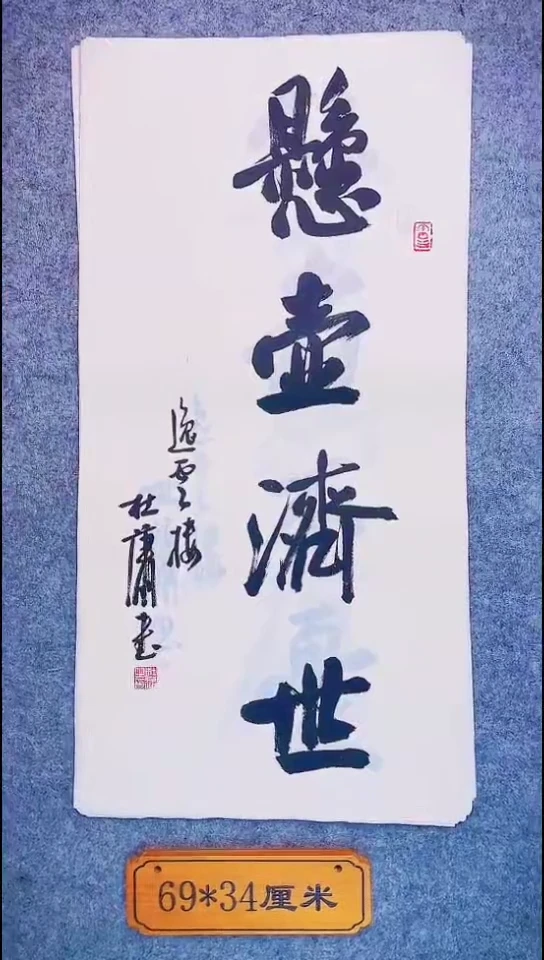 懸壺濟世
逸雲樓
杜蕭書
69*34厘米